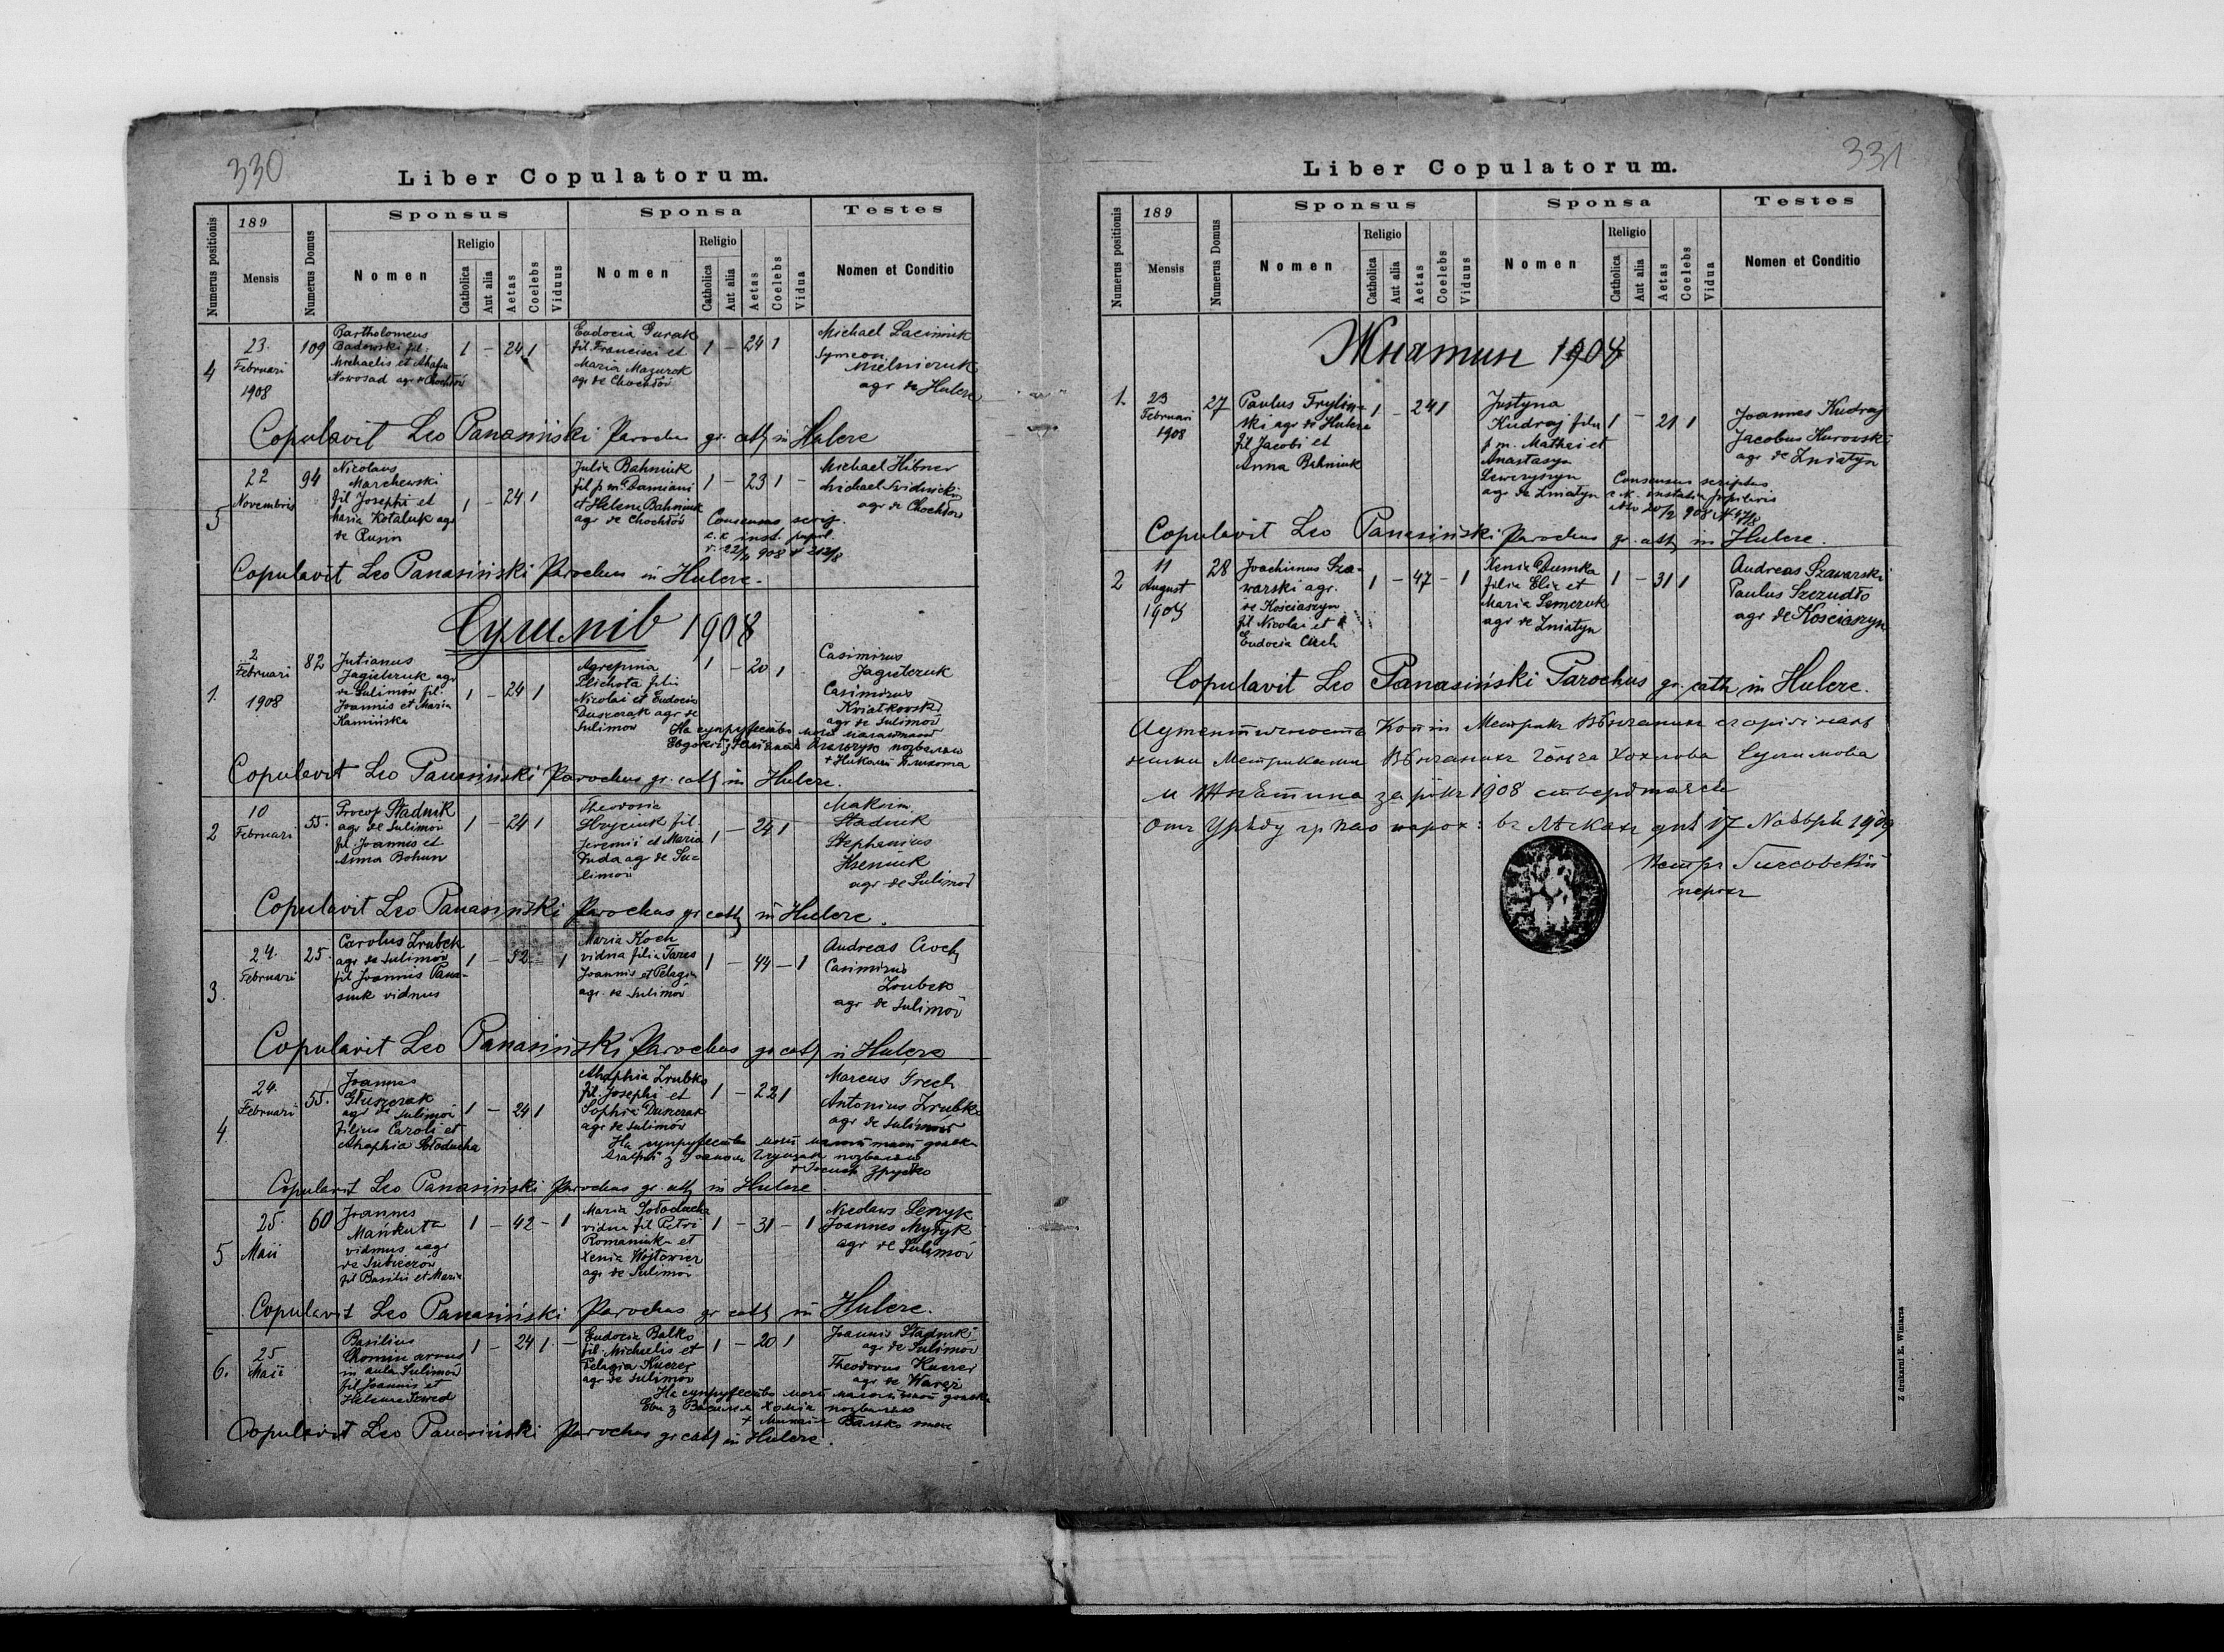 330
Liber Copulatorum.
Numerus positionis
189
Mensis
Numerus Domus
Sponsus
Nomen
Religio
Catholica
Aut alia
Aetas
Coelebs
Viduus
Sponsa
Nomen
Religio
Catholica
Aut alia
Aetas
Coelebs
Vidua
Testes
Nomen et Conditio
4
23.
Februari
1908
109
Bartholomeus
Badowski fil.
Michaelis et Ahafia
Nowosad agr de Chochłów
1 – 24 1
Eudocia Gurak
fil. Francisci et
Maria Mazurok
agr de Chochłów
1 – 24 1
Michael
Symeon
Mielniczuk
agr de Hulcze
Copulavit Leo Panasiński Parochus gr. cath in Hulcze
5
22
Novembris
94
Nicolaus
Marchewski
fil Josephi et
Maria Kotaluk agr
de Rusin
1 – 24 1
Julia Bahniuk
fil p. m. Damiani
et Helena Bahniuk
agr de Chochłów
1 – 23 1 –
Consensus scrip.
c. k inst. pupil.
Michael Hibner
Michael Svidnicki
agr de Chochłów
Copulavit Leo Panasiński Parochus in Hulcze.
Сулимів 1908
1.
2
Februari
1908
82
Julianus
Jagielczuk agr
de Sulimów fil.
Joannis et Maria
Kamińska
1 – 24 1
Agrepina
Plichota fil.
Nicolai et Eudocia
Duszczak agr de
Sulimów
1 – 20 1
Casimirus
Jagielczuk
Casimirus
Kviatkovski
agr de Sulimów
На супружество моей малолітної
позваляю
+ Николай Плихота
Copulavit Leo Panasiński Parochus gr. cath in Hulcze.
2
10
Februari
55.
Procop Stadnik
agr de Sulimów
fil. Joannis et
Anna Bohun
1 – 24 1
Theodosia
Hryciuk fil.
Jeremii et Maria
Duda agr de Su-
limów
1 – 24 1
Maksim
Stadnik
Stephanius
Kseniuk
agr de Sulimów
Copulavit Leo Panasiński Parochus gr cath in Hulcze.
3.
24.
Februari
25.
Carolus Zrubek
agr de Sulimów
fil Joannis Pana-
siuk viduus
1 – 52 – 1
Maria Koch
vidua filia Tares
Joannis et Pelagia
agr. de Sulimów
1 – 44 – 1
Andreas Czoch
Casimirus
Zrubek
agr de Sulimów
Copulavit Leo Panasiński Parochus gr cath in Hulcze
4
24.
Februari
55.
Joannes
Głuszczak
agr de Sulimów
filius Caroli et
Ahaphia Sołoducha
1 – 24 1
Ahaphia Zrubko
fil. Josephi et
Sophia Duszczak
agr de Sulimów
1 – 22 1
Marcus Grech
Antonius Zrubko
agr de Sulimów
На супружество моей дочки
Агафії з Іоаном Глущак позваляю
+ Іосиф Зрубко
Copulavit Leo Panasiński Parochus gr. cath in Hulcze.
5
25.
Maii
60
Joannes
Mańkuta
viduus agr
de
fil Basilii et Maria
1 – 42 – 1
Maria Sołoducha
vidua fil Petri
Romaniuk et
Xenia Wojtowicz
agr de Sulimów
1 – 31 – 1
Nicolaus Senyk
Joannes Mytyk
agr de Sulimów
Copulavit Leo Panasiński Parochus gr cath in Hulcze.
6.
25
Maii
Basilius
Chomin
in aula Sulimów
fil Joannis et
Helena
1 – 24 1 –
Eudocia Balko
fil. Michaelis et
Pelagia Kuczer
agr de Sulimów
1 – 20 1
Joannis Stadnik
agr de Sulimów
Theodorus Kuczer
agr de Waręż
На супружество моей малолітной дочки
з Василем Хомін позваляю
+ Балько
Copulavit Leo Panasiński Parochus gr cath in Hulcze.
331
Liber Copulatorum.
Numerus positionis
189
Mensis
Numerus Domus
Sponsus
Nomen
Religio
Catholica
Aut alia
Aetas
Coelebs
Viduus
Sponsa
Nomen
Religio
Catholica
Aut alia
Aetas
Coelebs
Vidua
Testes
Nomen et Conditio
Жнятин 1908
1.
23
Februari
1908
27
Paulus Frylin-
ski agr de Hulcze
fil Jacobi et
Anna Bahniuk
1 – 24 1
Justyna
Kudraj filia
p m. Mathei et
Anastasya
agr de Zniatyn
1 – 21 1
Consensus scriptus
Joannes Kudraj
Jacobus Hurowski
agr de Zniatyn
Copulavit Leo Panasiński Parochus gr. cath in Hulcze.
2
11
August
1908
28
Joachimus Sza-
warski agr.
de Kościaszyn
fil Nicolai et
Eudocia Czech
1 – 47 – 1
Xenia Dumka
filia Elia et
Maria Semczuk
agr de Zniatyn
1 – 31 1
Andreas Szawarski
Paulus Szczudło
agr de Kościaszyn
Copulavit Leo Panasiński Parochus gr. cath in Hulcze.
Аутентичность Копіи Метрикъ Вѣнчаныхъ съ оригіналь
ными Метриками Вѣнчаныхъ Гольча Хохлова Сулимова
и Жнятина за рокъ 1908 ствердтаєся
Отъ Уряду гр кат парох: въ Лѣскахъ дня 17 Ноября 1909
Петръ
парохъ
Z drukarni E. Winiarza